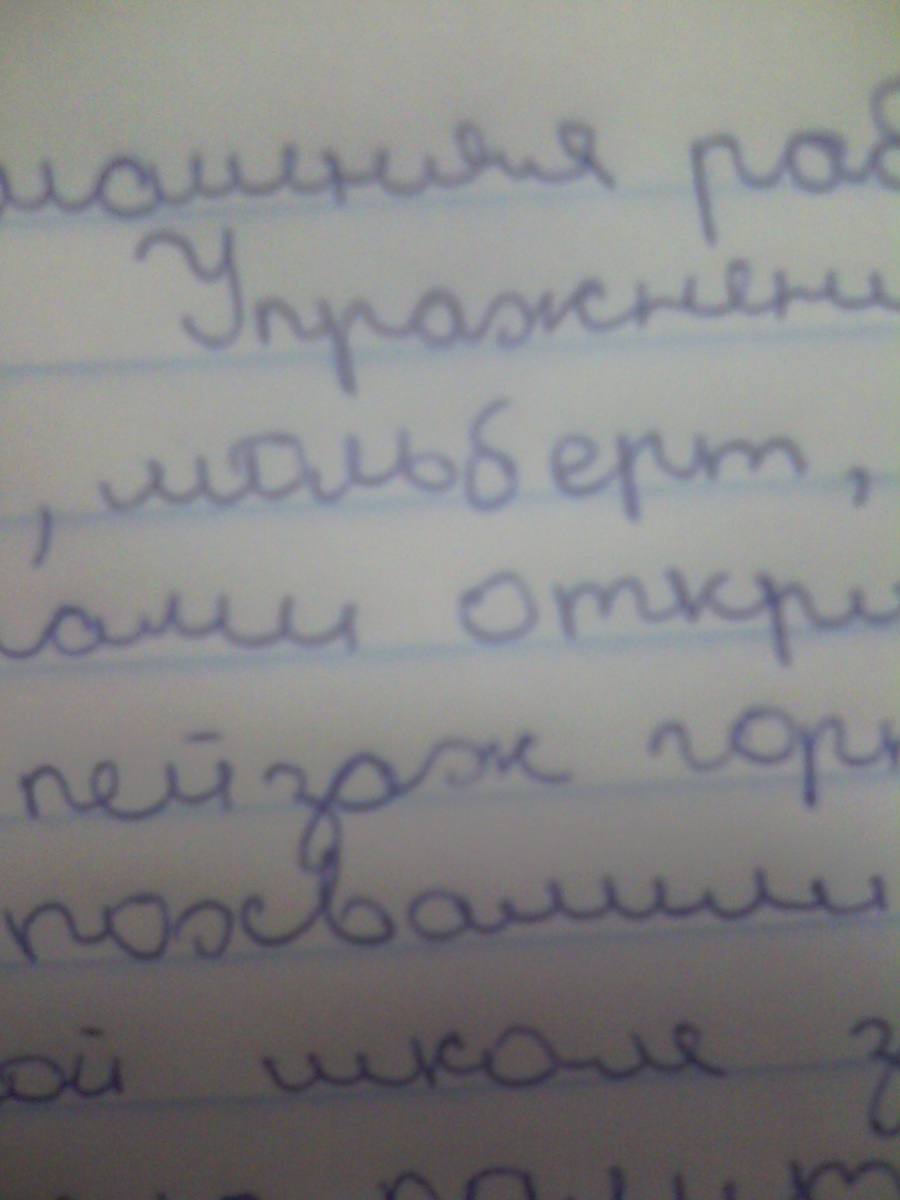 машняя раб
Упражнени
, мальберт,
ами откри
пейзаж горн
похвалили
ой школе з